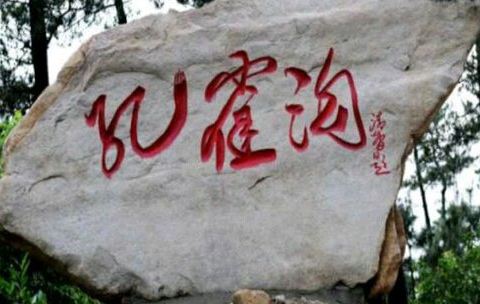 孔雀沟